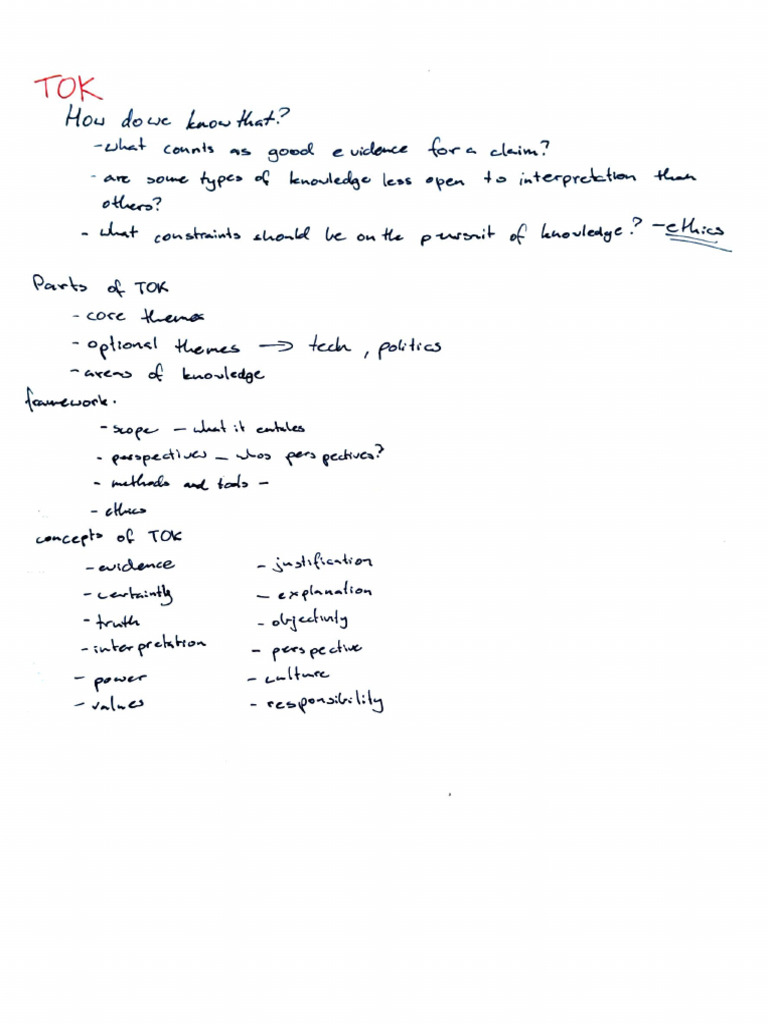 TOK
How do we know that?
- what counts as good evidence for a claim?
- are some types of knowledge less open to interpretation than
others?
- what constraints should be on the pursuit of knowledge? - ethics
Parts of TOK
- core themes
- optional themes → tech, politics
- areas of knowledge
framework.
- scope - what it entales
- perspectives - whos perspectives?
- methods and tools -
- ethics
concepts of TOK
- evidence - justification
- certaintly - explanation
- truth - objectivity
- interpretation - perspective
- power - culture
- values - responsibility